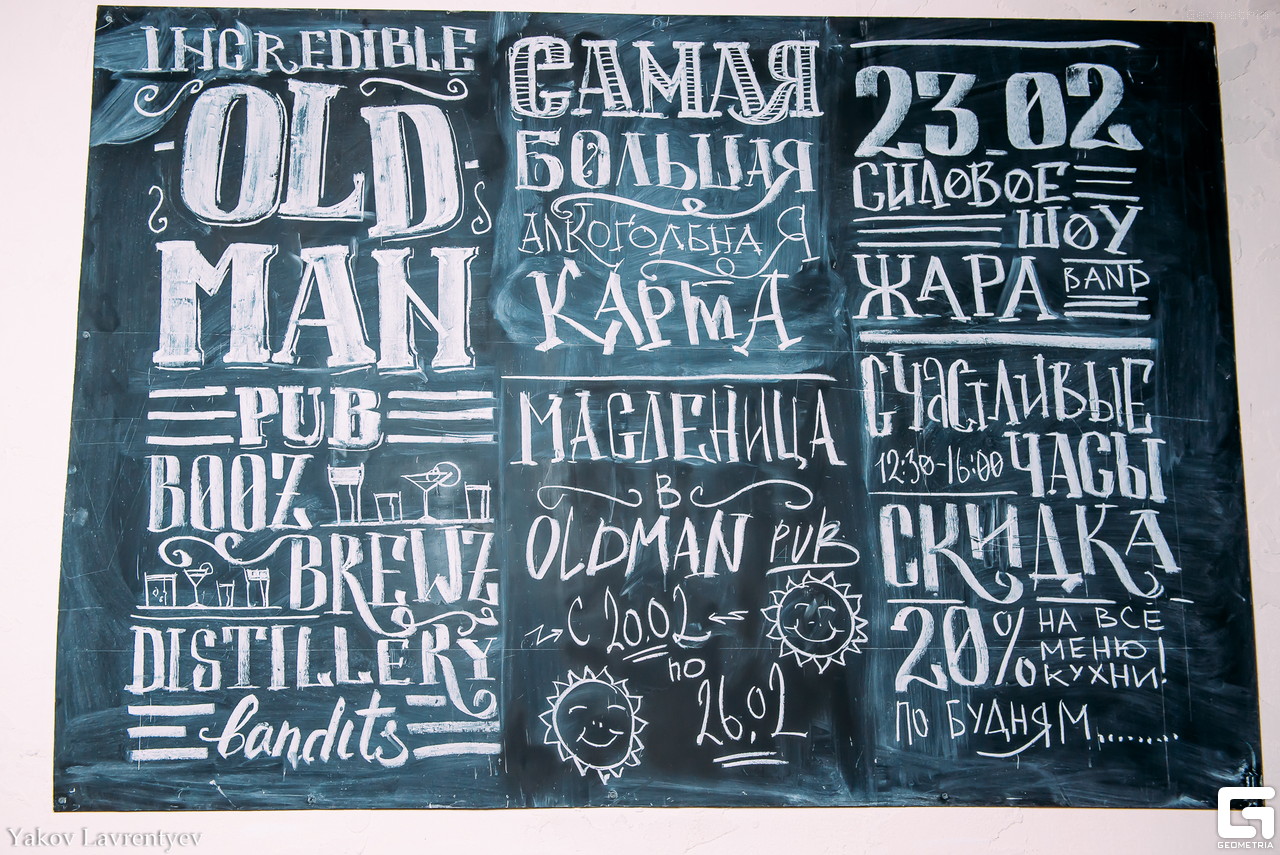 INCREDIBLE
OLD
MAN
PUB
BOOZ
BREWZ
DISTILLERY
bandits
САМАЯ
БОЛЬШАЯ
АЛКОГОЛЬНАЯ
КАРТА
МАСЛЕНИЦА
В
OLDMAN PUB
С 20.02
по
26.02
23.02
СИЛОВОЕ
ШОУ
ЖАРА BAND
СЧАСТЛИВЫЕ
12:30-16:00 ЧАСЫ
СКИДКА
20% НА ВСЁ
МЕНЮ
КУХНИ!
ПО БУДНЯМ........
Yakov Lavrentyev
GEOMETRIA